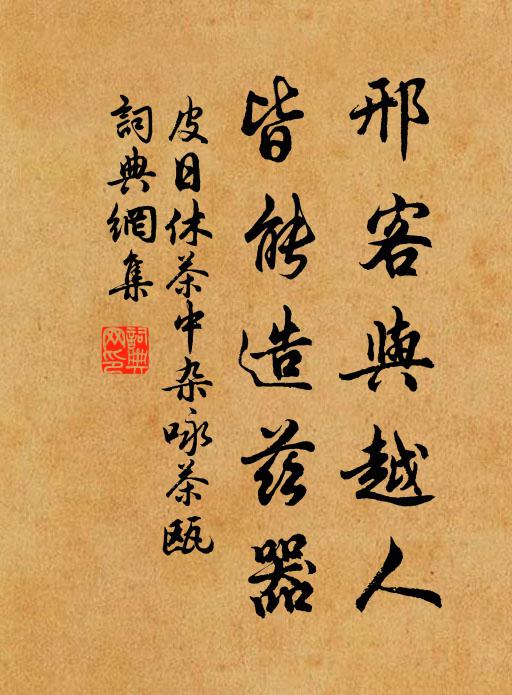 邢客與越人
皆能造茲器
皮日休茶中杂咏茶瓯
詞典網集
詞典网印